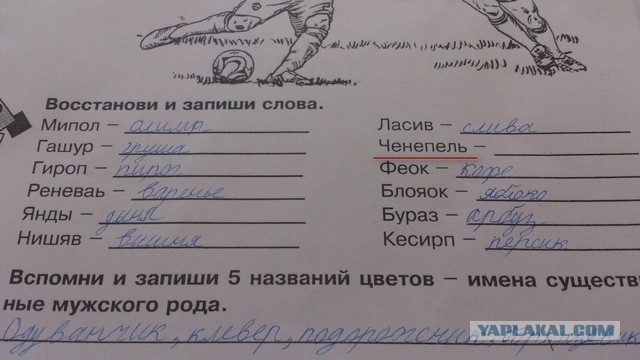 Восстанови и запиши слова.
Мипол – олимп Ласив – слива
Гашур – груша Ченепель –
Гироп – пирог Феок – кафе
Реневаь – варенье Блояок – яблоко
Янды – дыня Бураз – арбуз
Нишяв – вишня Кесирп – персик
Вспомни и запиши 5 названий цветов – имена существ
ные мужского рода.
Одуванчик, клевер, подорожник,
YAPLAKAL.COM